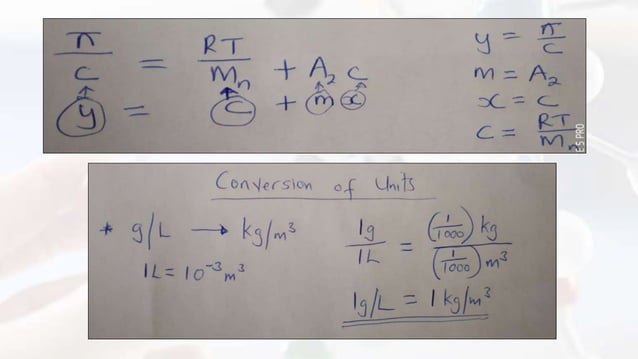 π/C = RT/Mn + A2 C
y = C + m x
y = π/C
m = A2
x = C
C = RT/Mn
E 5 PRO
Conversion of Units
* g/L → kg/m³
1L = 10⁻³ m³
1g/1L = (1/1000) kg/(1/1000) m³
1g/L = 1 kg/m³